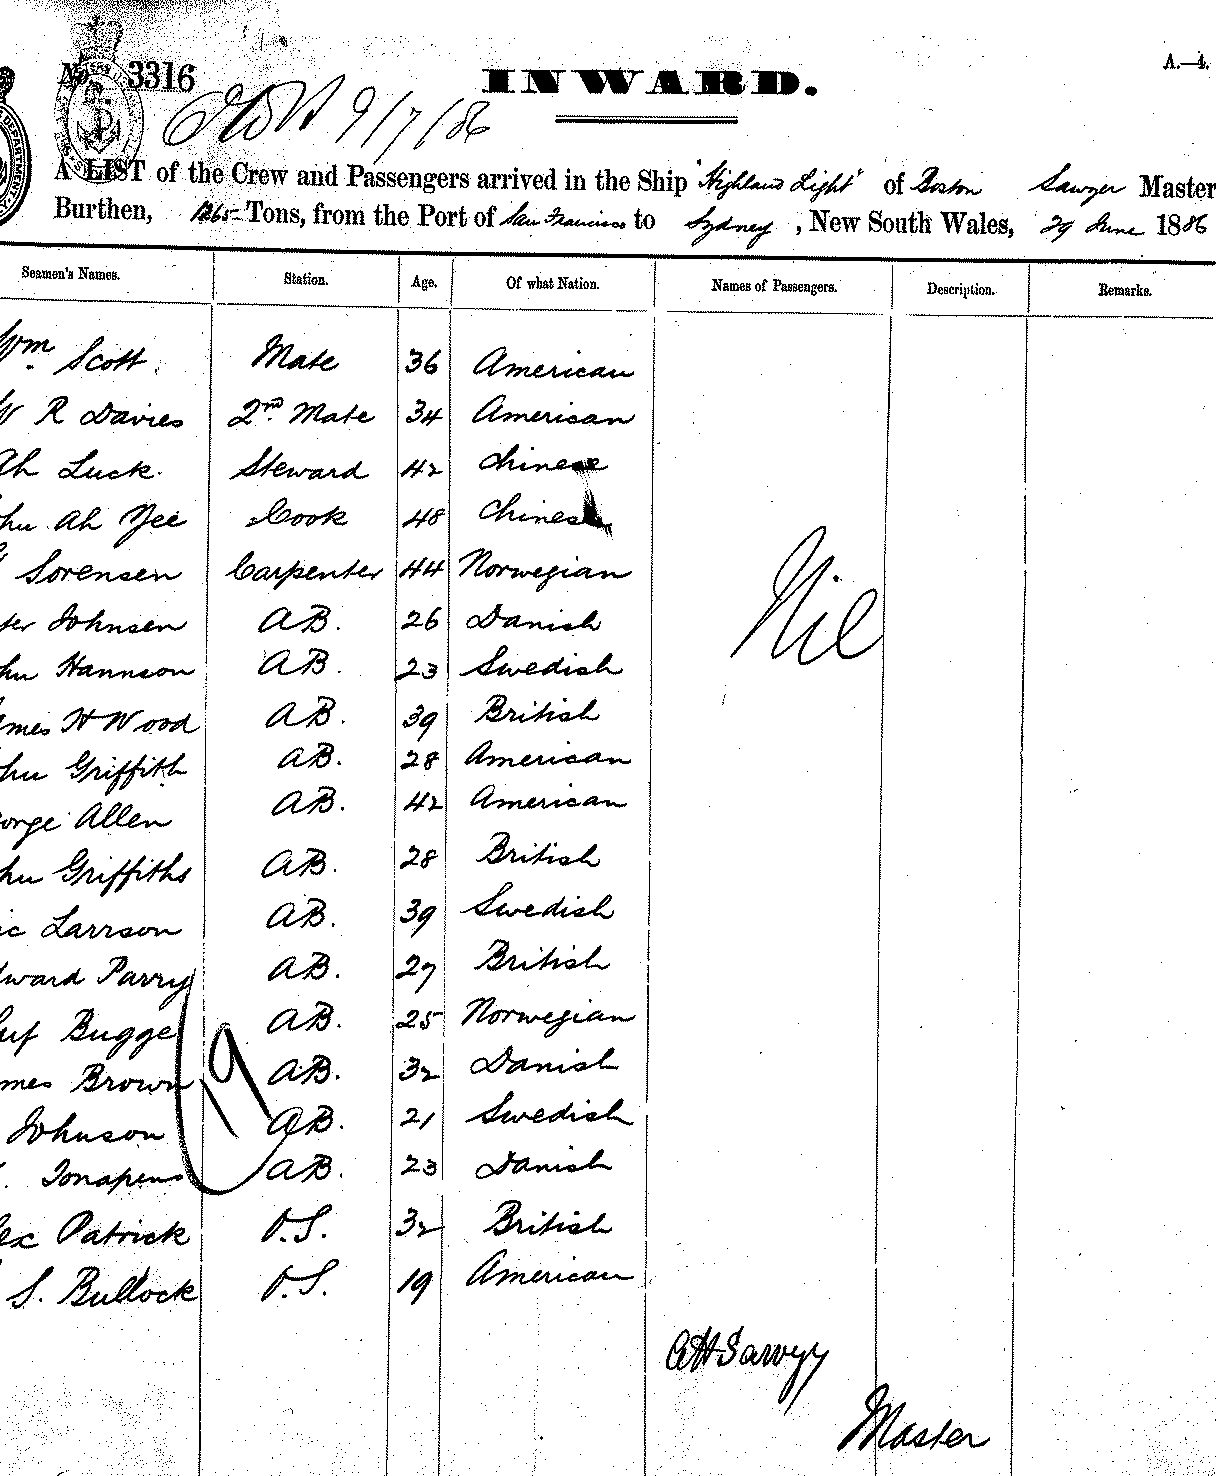 A.—4.
No. 3316 INWARD.
9/7/86
A LIST of the Crew and Passengers arrived in the Ship "Highland Light" of Boston Sawyer Master
Burthen, 1265 Tons, from the Port of San Francisco to Sydney, New South Wales, 29 June 1886
Seamen's Names. Station. Age. Of what Nation. Names of Passengers. Description. Remarks.
Wm Scott. Mate 36 American
W R Davies 2nd Mate 34 American
Ah Luck. Steward 42 Chinese
Ah Yee Cook 48 Chinese
Sorensen Carpenter 44 Norwegian
Johnsen AB. 26 Danish
Nil
Hannson AB. 23 Swedish
mes H Wood AB. 39 British
Griffith AB. 28 American
orge Allen AB. 42 American
Griffiths AB. 28 British
ic Larrson AB. 39 Swedish
ward Parry AB. 27 British
Bugge AB. 25 Norwegian
19
mes Brown AB. 32 Danish
Johnson AB. 21 Swedish
AB. 23 Danish
ex Patrick O.S. 32 British
S. Bullock O.S. 19 American
Master